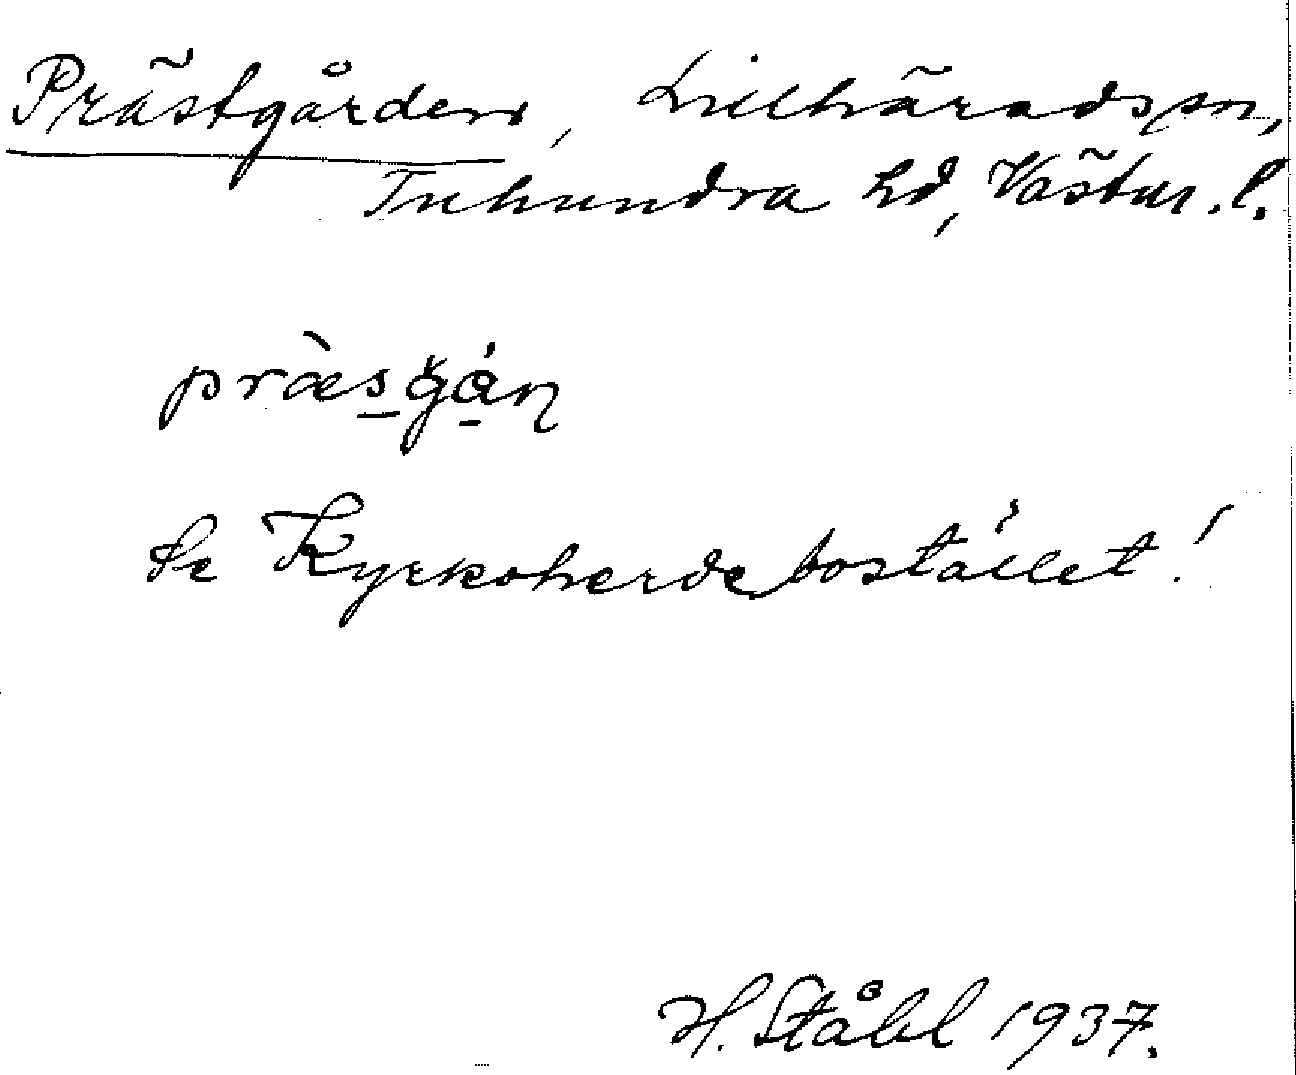 Prästgården, Lillhärads sn,
Tuhundra hd, Västm. l.
præ̀sgån
Se Kyrkoherdebostället!
H. Ståhl 1937.